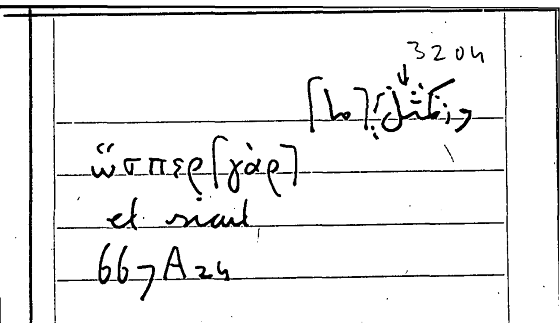 3204
وكمثل [ما]
ὥσπερ [γὰρ]
et sicut
667A24